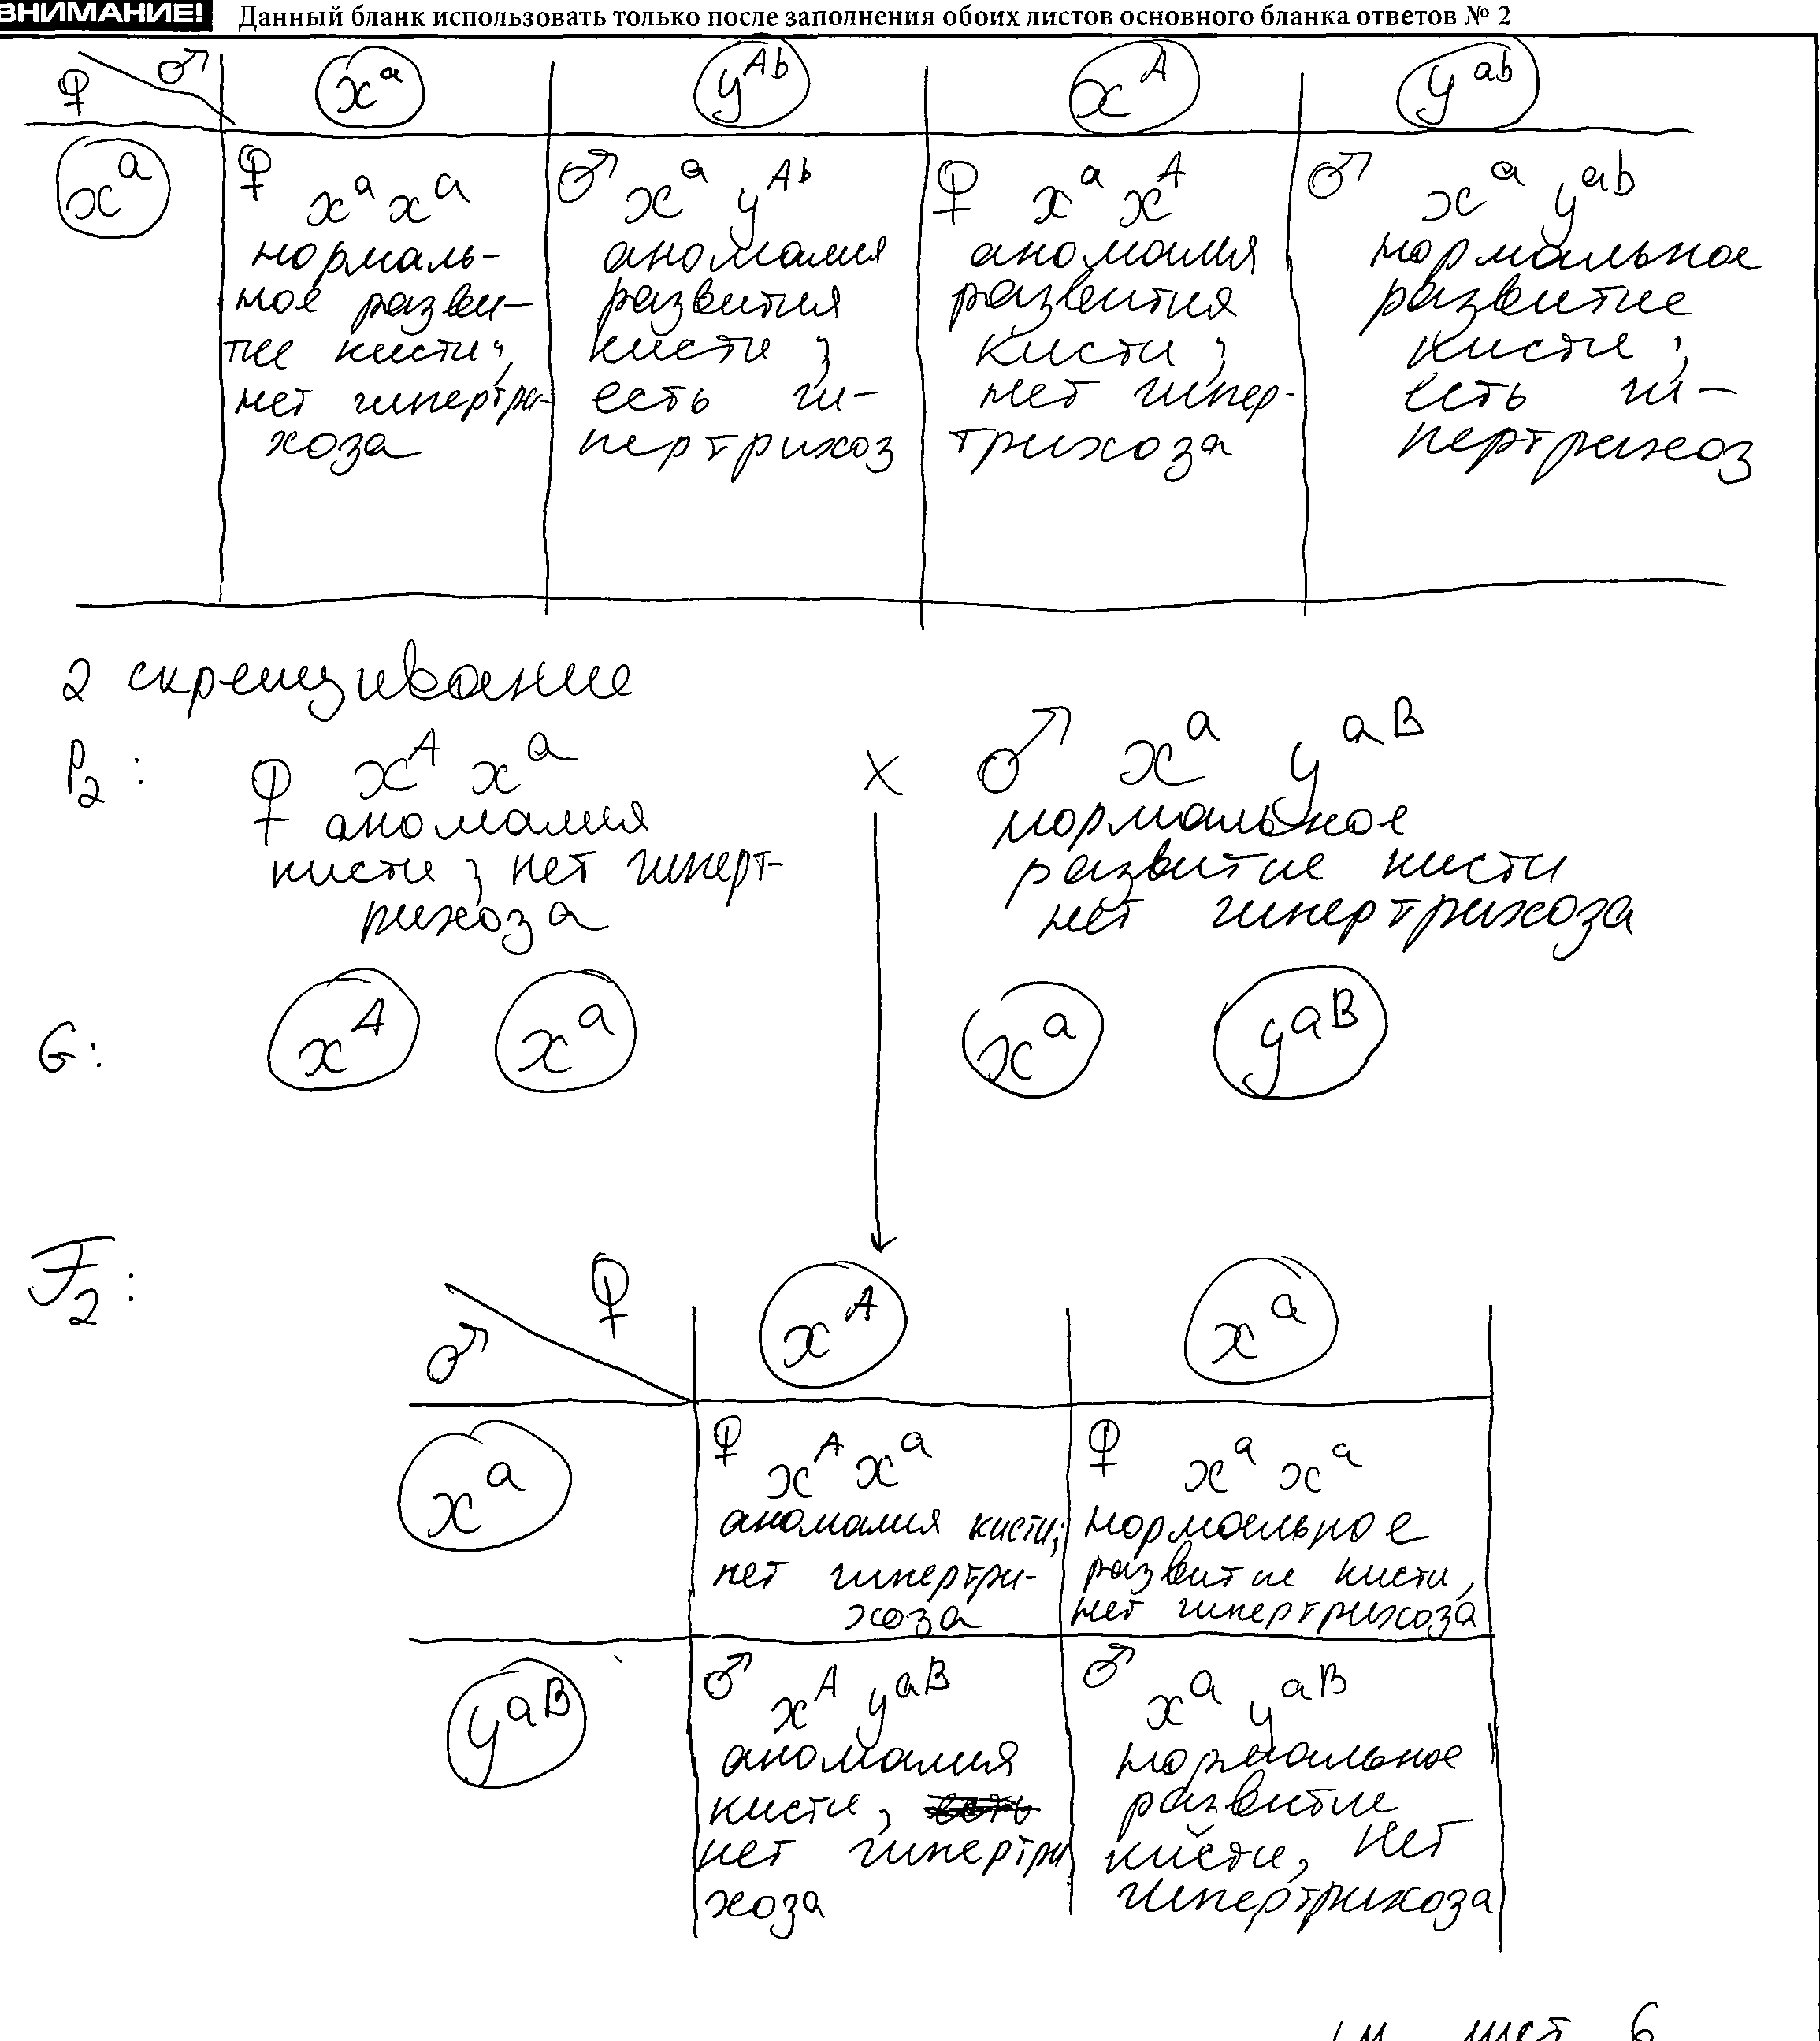 ВНИМАНИЕ! Данный бланк использовать только после заполнения обоих листов основного бланка ответов № 2
♀ ♂ xᵃ yᴬᵇ xᴬ yᵃᵇ
xᵃ
♀ xᵃ xᵃ
нормаль-
ное разви-
тие кисти;
нет гипертри-
хоза
♂ xᵃ yᴬᵇ
аномалия
развития
кисти;
есть ги-
пертрихоз
♀ xᵃ xᴬ
аномалия
развития
кисти;
нет гипер-
трихоза
♂ xᵃ yᵃᵇ
нормальное
развитие
кисти;
есть ги-
пертрихоз
2 скрещивание
P₂: ♀ xᴬ xᵃ × ♂ xᵃ yᵃᴮ
аномалия
кисти; нет гиперт-
рихоза
нормальное
развитие кисти
нет гипертрихоза
G: xᴬ xᵃ xᵃ yᵃᴮ
F₂:
♂ ♀ xᴬ xᵃ
xᵃ
♀ xᴬ xᵃ
аномалия кисти;
нет гипертри-
хоза
♀ xᵃ xᵃ
нормальное
развитие кисти,
нет гипертрихоза
yᵃᴮ
♂ xᴬ yᵃᴮ
аномалия
кисти,
нет гипертри
хоза
♂ xᵃ yᵃᴮ
нормальное
развитие
кисти, нет
гипертрихоза